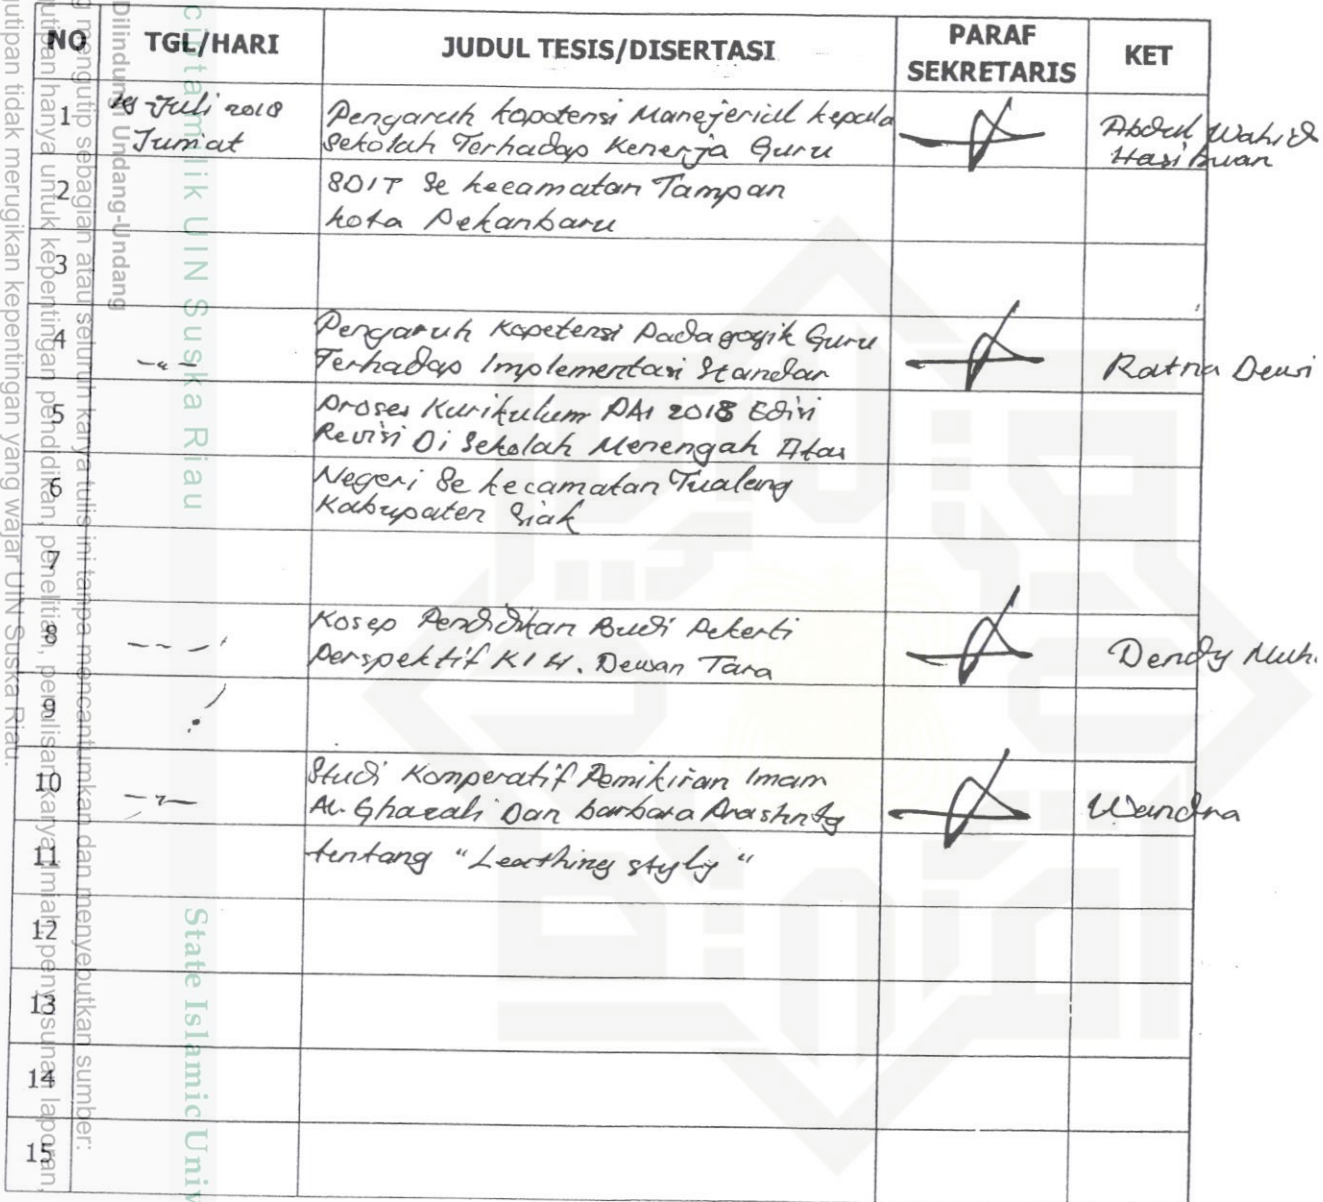 NO TGL/HARI JUDUL TESIS/DISERTASI PARAF SEKRETARIS KET
1 Juli 2018 Pengaruh kopotensi Manejeriall kepala Abdul Wahid
Jum'at Sekolah Terhadap Kenerja Guru Hasibuan
2 SDIT Se kecamatan Tampan
kota Pekanbaru
3
4 Pengaruh Kopetensi Padagogik Guru
Terhadap Implementasi Standar Ratna Dewi
5 Proses Kurikulum PAI 2018 Edisi
Revisi Di Sekolah Menengah Atas
6 Negeri Se kecamatan Tualang
Kabupaten Siak
7
8 Kosep Pendidikan Budi Pekerti
Perspektif KI H. Dewan Tara Dendy Muh.
9
10 Studi Komperatif Pemikiran Imam
AL-Ghazali Dan barbara Wandra
11 tentang "
12
13
14
15
Dilindungi Undang-Undang
mengutip sebagian atau seluruh karya tulis ini tanpa mencantumkan dan menyebutkan sumber:
hanya untuk kepentingan pendidikan, penelitian, penulisan karya ilmiah, penyusunan laporan,
tidak merugikan kepentingan yang wajar UIN Suska Riau.
cipta milik UIN Suska Riau
State Islamic Univ